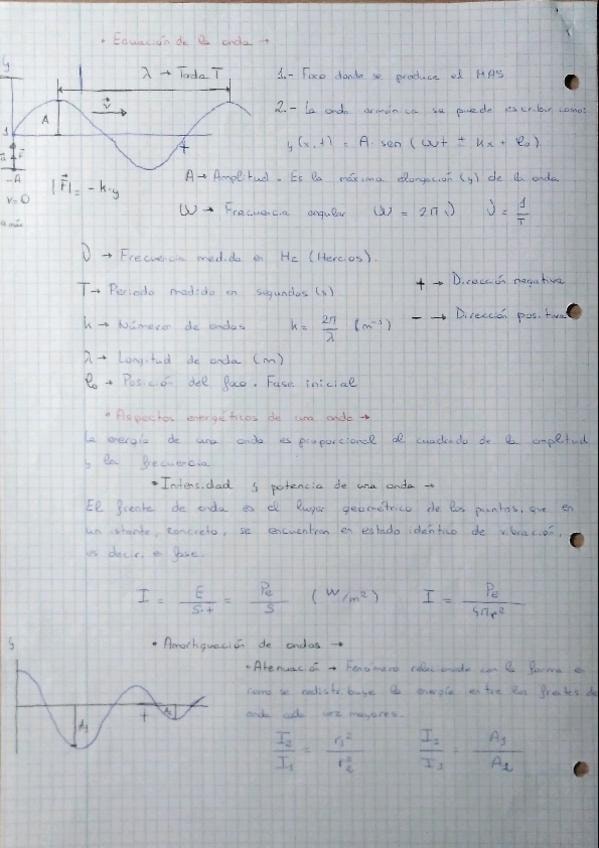 • Ecuación de la onda →
y
λ → Toda T
1.- Foco donde se produce el MAS
v
2.- La onda armónica se puede escribir como:
A
1
y(x,t) = A · sen (ωt ± kx + φ₀)
-A
|F| = -k·y
A → Amplitud. Es la máxima elongación (y) de la onda
v=0
ω → Frecuencia angular ω = 2πν ν = 1/T
a máx
ν → Frecuencia medida en Hz (Hercios).
+ → Dirección negativa
T → Periodo medido en segundos (s)
- → Dirección positiva
k → Número de ondas k = 2π/λ (m⁻¹)
λ → Longitud de onda (m)
φ₀ → Posición del foco. Fase inicial
• Aspectos energéticos de una onda →
La energía de una onda es proporcional al cuadrado de la amplitud
y la frecuencia
• Intensidad y potencia de una onda →
El frente de onda es el lugar geométrico de los puntos, que en
un istante, concreto, se encuentran en estado idéntico de vibración,
es decir, en fase.
I = E/S·t = Pe/S (W/m²) I = Pe/4πr²
• Amortiguación de ondas →
y
• Atenuación → Fenómeno relacionado con la forma en
como se redistribuye la energía entre los frentes de
onda cada vez mayores.
A₁
t
A₂
I₂/I₁ = r₁²/r₂² I₂/I₁ = A₁/A₂